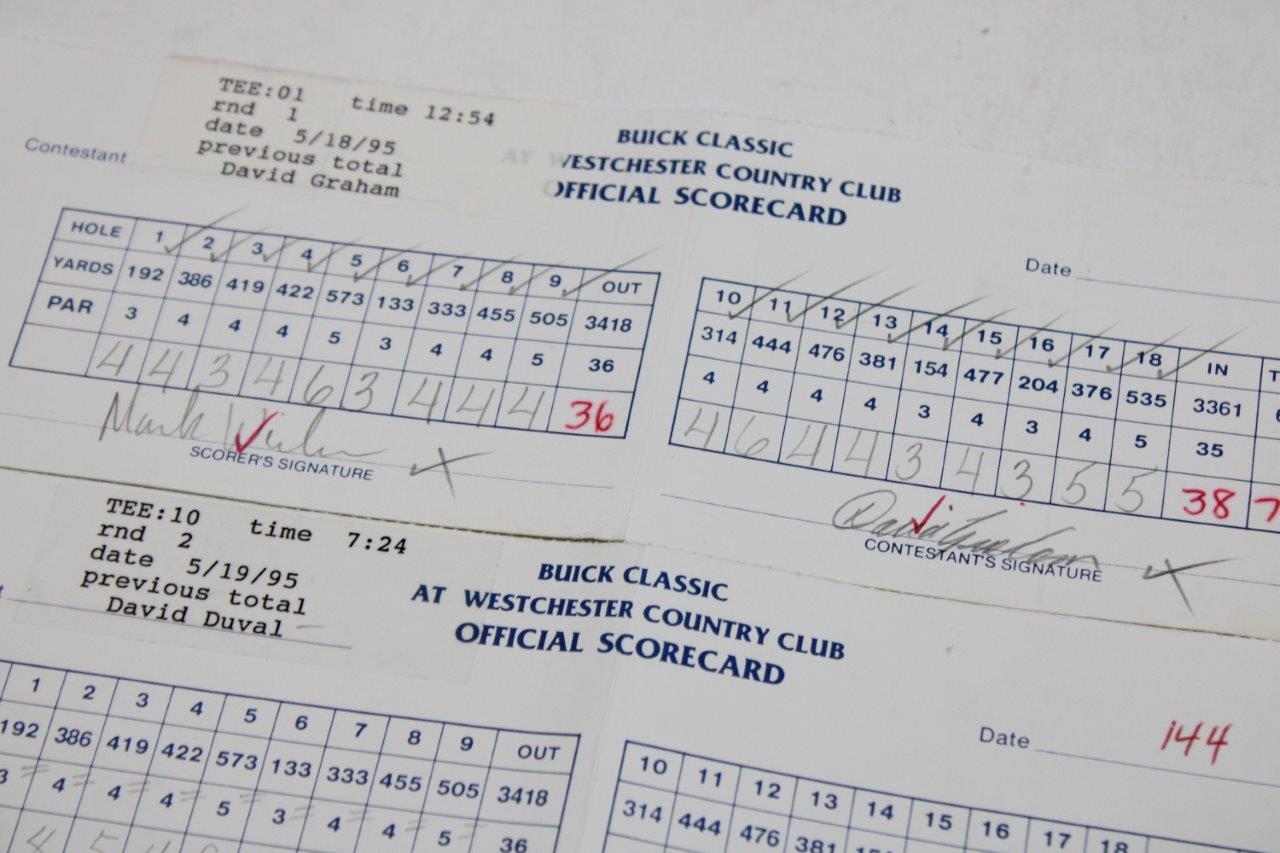 TEE:01 time 12:54
rnd 1
date 5/18/95
previous total
David Graham
Contestant
BUICK CLASSIC
AT WESTCHESTER COUNTRY CLUB
OFFICIAL SCORECARD
Date
HOLE 1 2 3 4 5 6 7 8 9 OUT
YARDS 192 386 419 422 573 133 333 455 505 3418
PAR 3 4 4 4 5 3 4 4 5 36
4 4 3 4 6 3 4 4 4 36
10 11 12 13 14 15 16 17 18 IN T
314 444 476 381 154 477 204 376 535 3361 6
4 4 4 4 3 4 3 4 5 35
4 6 4 4 3 4 3 5 5 38 7
Mark
SCORER'S SIGNATURE
David Graham
CONTESTANT'S SIGNATURE
TEE:10 time 7:24
rnd 2
date 5/19/95
previous total
David Duval
BUICK CLASSIC
AT WESTCHESTER COUNTRY CLUB
OFFICIAL SCORECARD
Date 144
1 2 3 4 5 6 7 8 9 OUT
192 386 419 422 573 133 333 455 505 3418
3 4 4 4 5 3 4 4 5 36
4 5 4
10 11 12 13 14 15 16 17 18
314 444 476 381